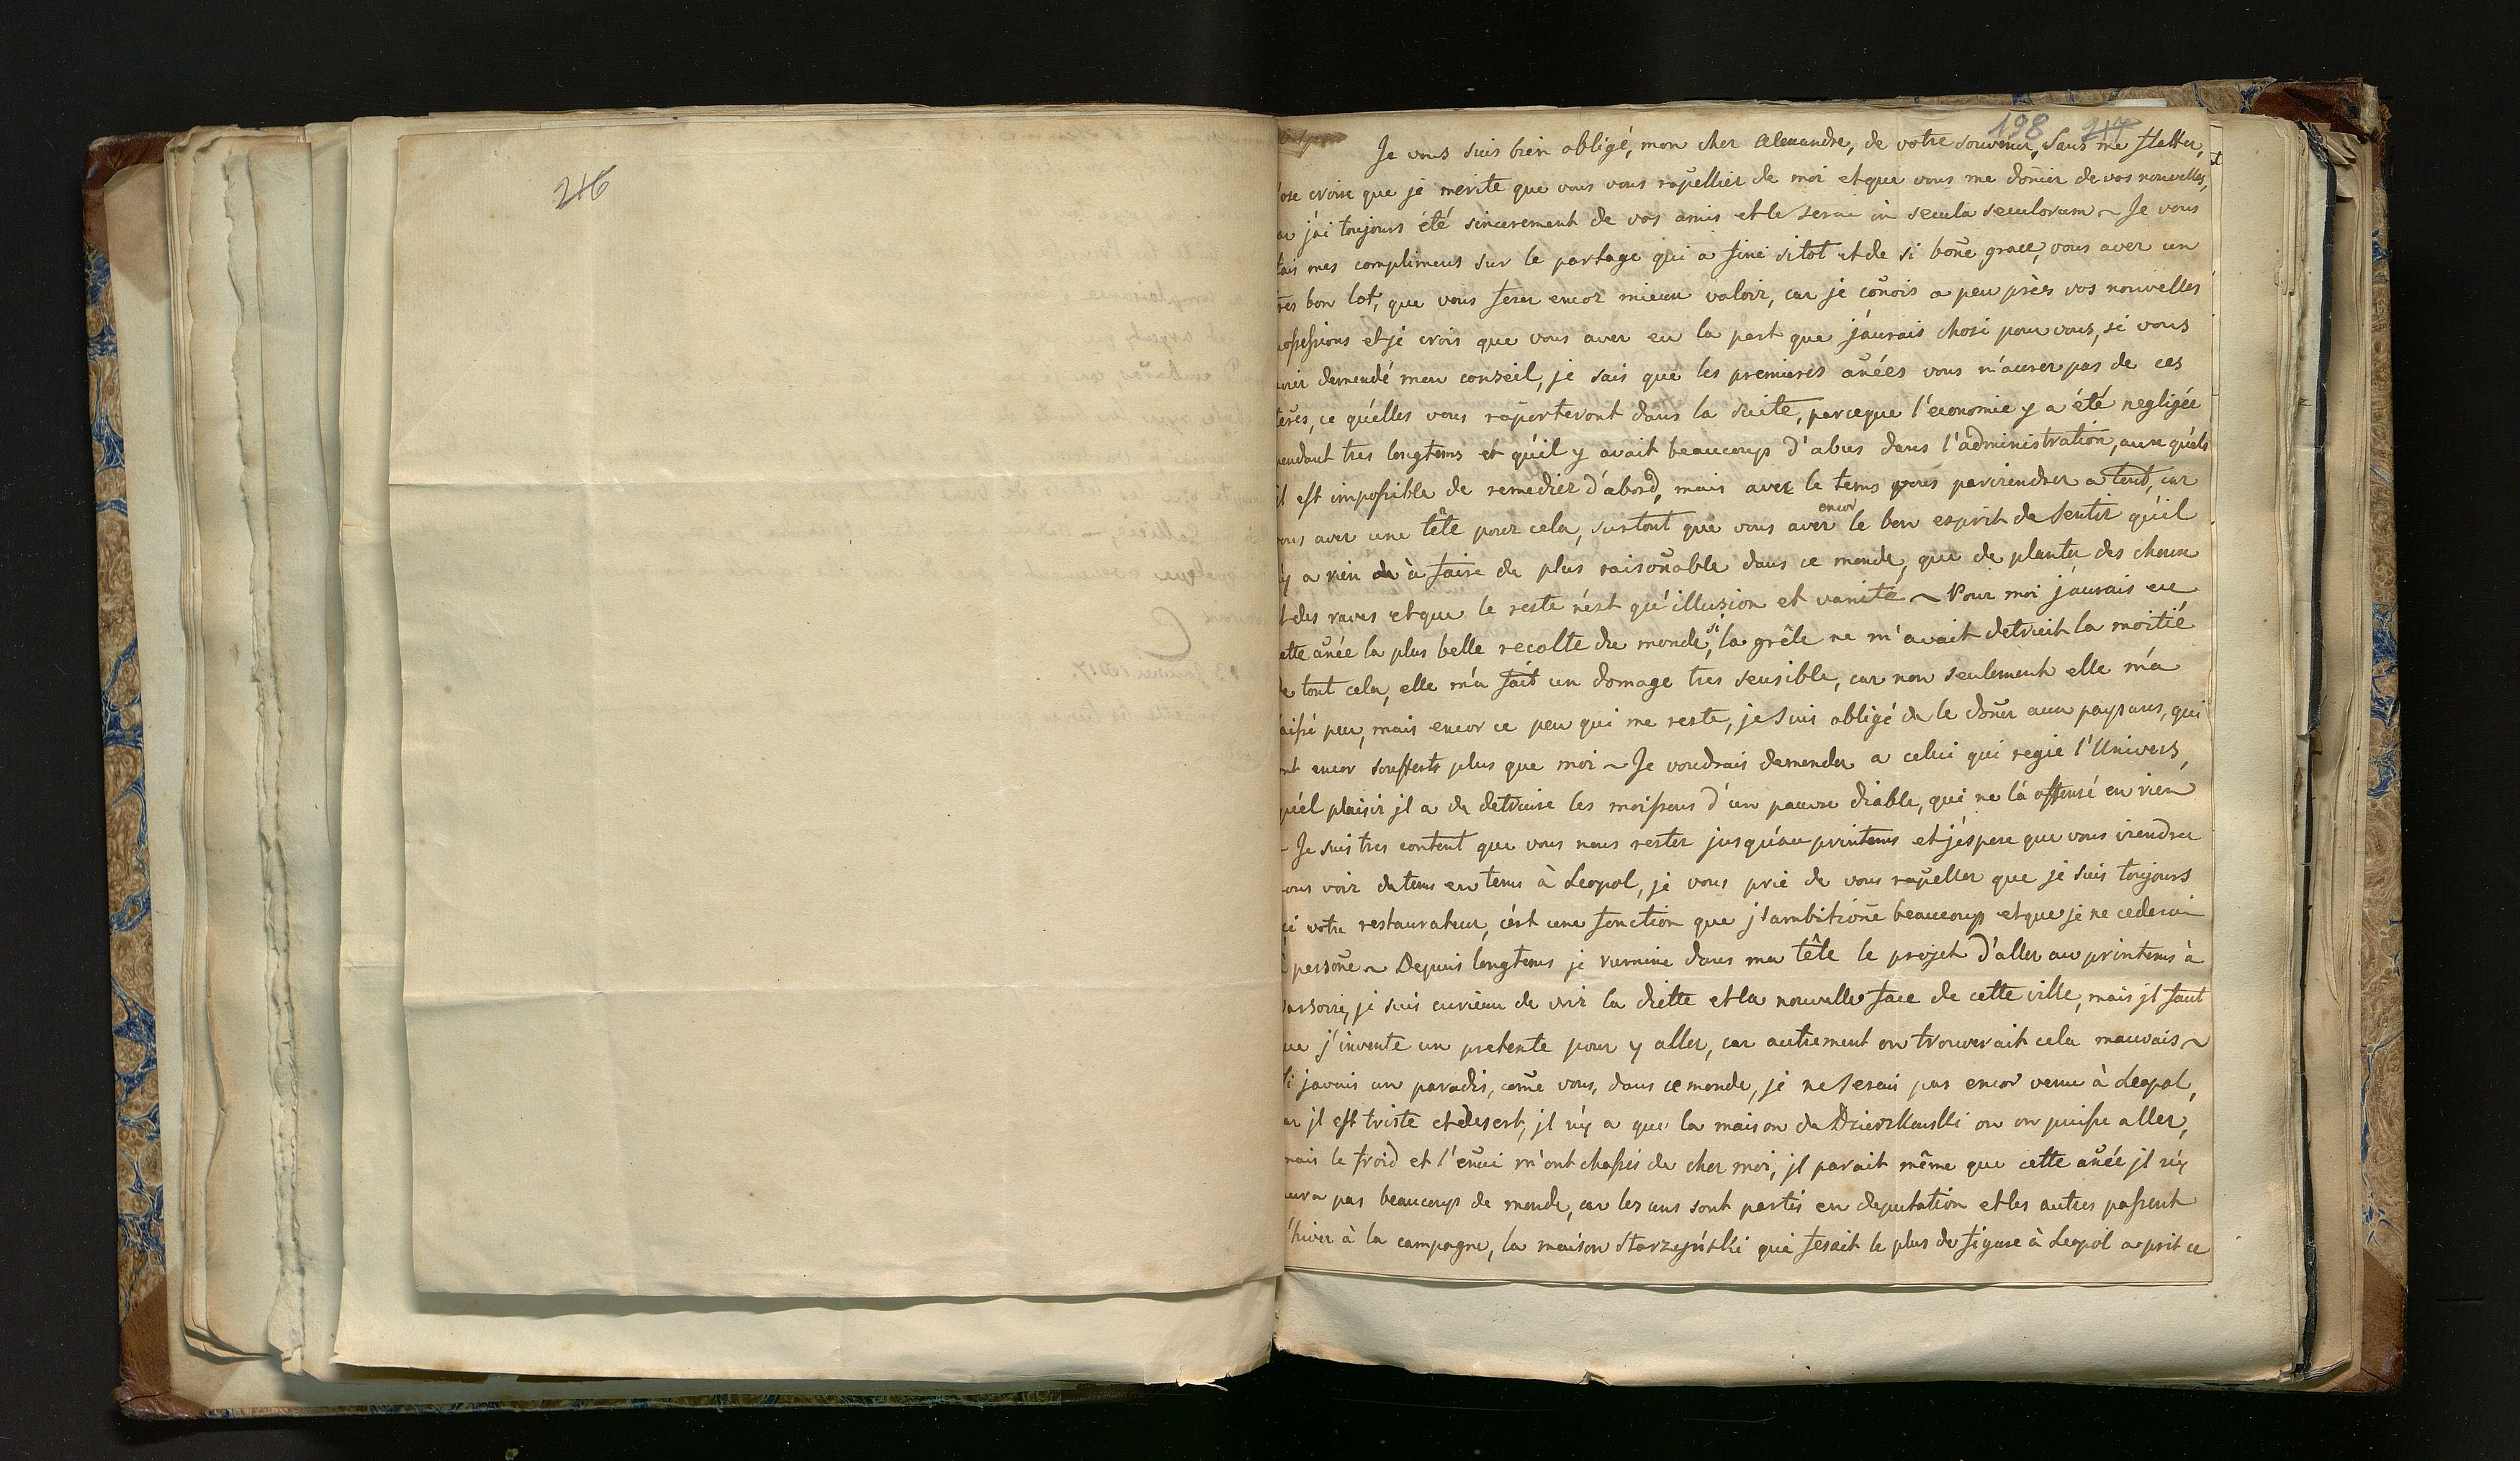 216
198 217
Je vous suis bien obligé, mon cher Alexandre, de votre souvenir, Sans me flatter,
ose croire que je merite que vous vous rapelliez de moi et que vous me doñiez de vos nouvelles,
j'ai toujours été sincerement de vos amis et le serai in secula seculorum ~ Je vous
fais mes complimens sur le partage qui a fini sitot et de si boñe grace, vous avez un
res bon lot, que vous ferez encor mieux valoir, car je coñois a peu près vos nouvelles
possessions et je crois que vous avez eu la part que j'aurais choisi pour vous, si vous
aviez demendé mon conseil, je sais que les premieres añées vous n'aurez pas de ces
teres, ce qu'elles vous raporteront dans la suite, parceque l'economie y a été negligée
pendant tres longtems et qu'il y avait beaucoup d'abus dans l'administration, aux quels
il est impossible de remedier d'abord, mais avec le tems vous parviendrez a tout, car
vous avez une tête pour cela, surtout que vous avez encor le bon esprit de sentir qu'il
n'y a rien à faire de plus raisoñable dans ce monde, que de planter des choux
et des raves et que le reste n'est qu'illusion et vanité ~ Pour moi j'aurais eu
cette añée la plus belle recolte du monde, si la grêle ne m'avait detruit la moitié
de tout cela, elle m'a fait un domage tres sensible, car non seulement elle m'a
laissé peu, mais encor ce peu qui me reste, je suis obligé de le doñer aux paysans, qui
ont encor soufferts plus que moi ~ Je voudrais demender a celui qui regie l'Univers,
quel plaisir jl a de detruire les moissons d'un pauvre diable, qui ne l'a offensé en rien
- Je suis tres content que vous nous restez jusqu'au printems et j'espere que vous viendrez
nous voir de tems en tems à Leopol, je vous prie de vous rapeller que je suis toujours
ici votre restaurateur, c'est une fonction que j'ambitioñe beaucoup et que je ne cederai
à persoñe ~ Depuis longtems je rumine dans ma tête le projet d'aller au printems à
Varsovie, je suis curieux de voir la diette et la nouvelle face de cette ville, mais jl faut
que j'invente un pretexte pour y aller, car autrement on trouverait cela mauvais ~
Si javais un paradis, come vous, dans ce monde, je ne serais pas encor venu à Leopol,
car jl est triste et desert, jl n'y a que la maison de Dzierzkowski ou on puisse aller,
mais le froid et l'eñui m'ont chassés de chez moi, jl parait même que cette añée jl n'y
aura pas beaucoup de monde, car les uns sont partis en deputation et les autres passent
l'hiver à la campagne, la maison Starzeyński qui fesait le plus de figure à Leopol a prit ce